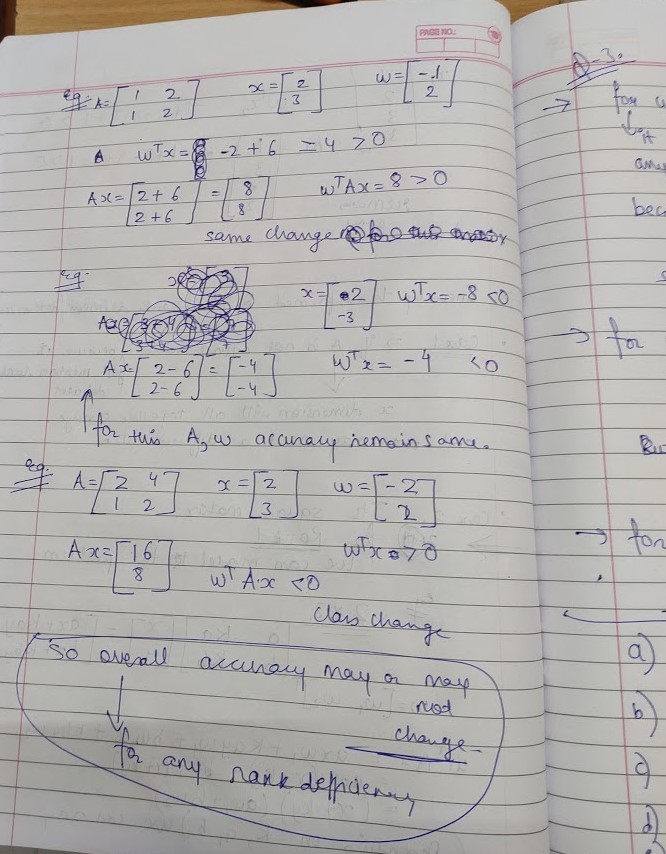 PAGE NO.:
eg. A = [1 2; 1 2] x = [2; 3] w = [-1; 2]
wᵀx = -2 + 6 = 4 > 0
Ax = [2+6; 2+6] = [8; 8] wᵀAx = 8 > 0
same change
eg. x = [2; -3] wᵀx = -8 < 0
Ax = [2-6; 2-6] = [-4; -4] wᵀx = -4 < 0
for this A, w accuracy remain same.
eg. A = [2 4; 1 2] x = [2; 3] w = [-2; 2]
Ax = [16; 8] wᵀx > 0
wᵀA.x < 0
Class change
So overall accuracy may or may
not
change
for any rank defficiency
Q-3.
→ for
it
bec
→ for
→ for
a)
b)
c)
d)